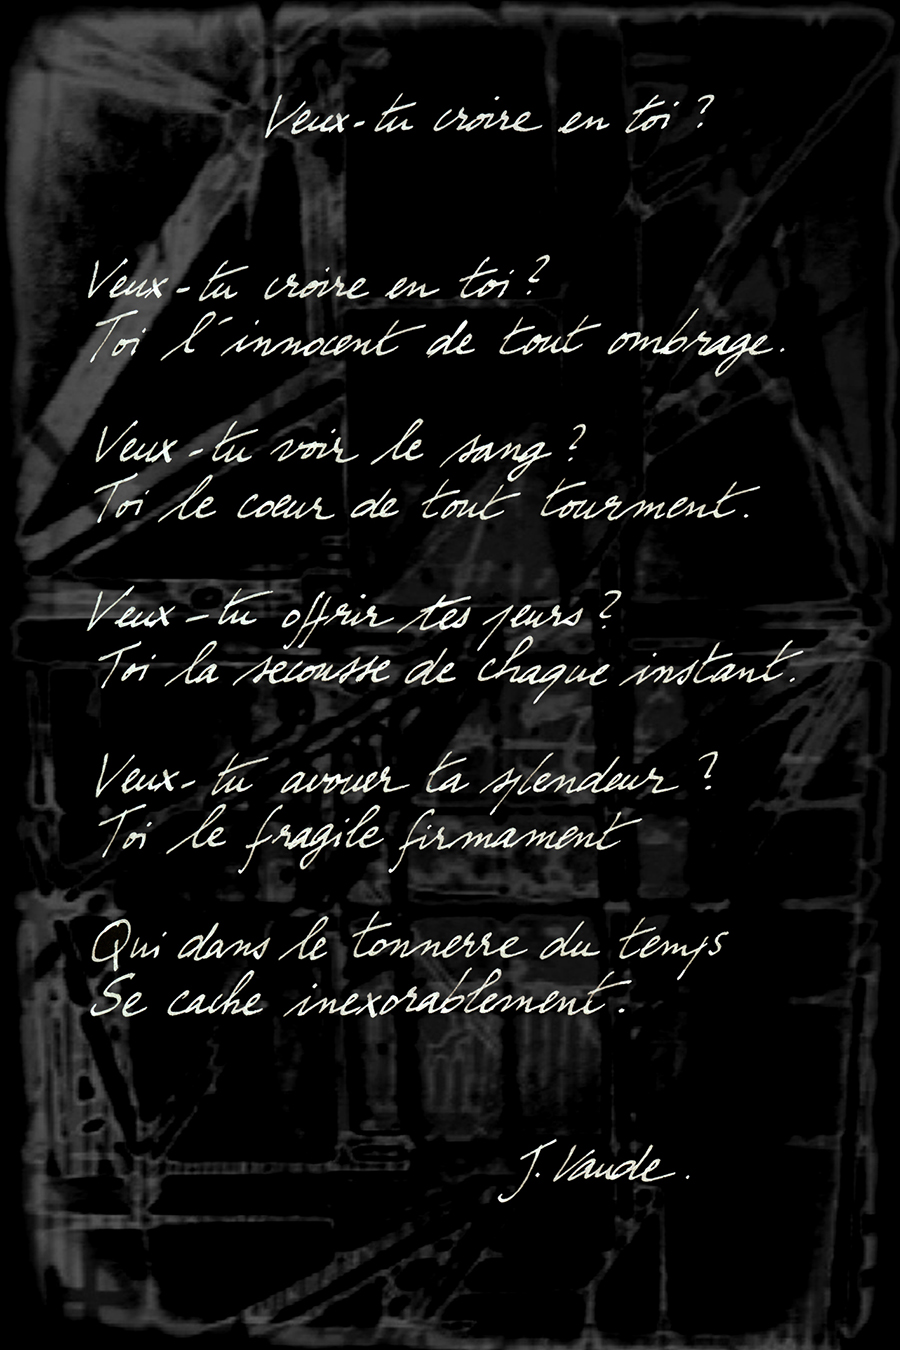 Veux-tu croire en toi ?
Veux-tu croire en toi ?
Toi l'innocent de tout ombrage.
Veux-tu voir le sang ?
Toi le cœur de tout tourment.
Veux-tu offrir tes peurs ?
Toi la secousse de chaque instant.
Veux-tu avouer ta splendeur ?
Toi le fragile firmament
Qui dans le tonnerre du temps
Se cache inexorablement.
J. Vaude.